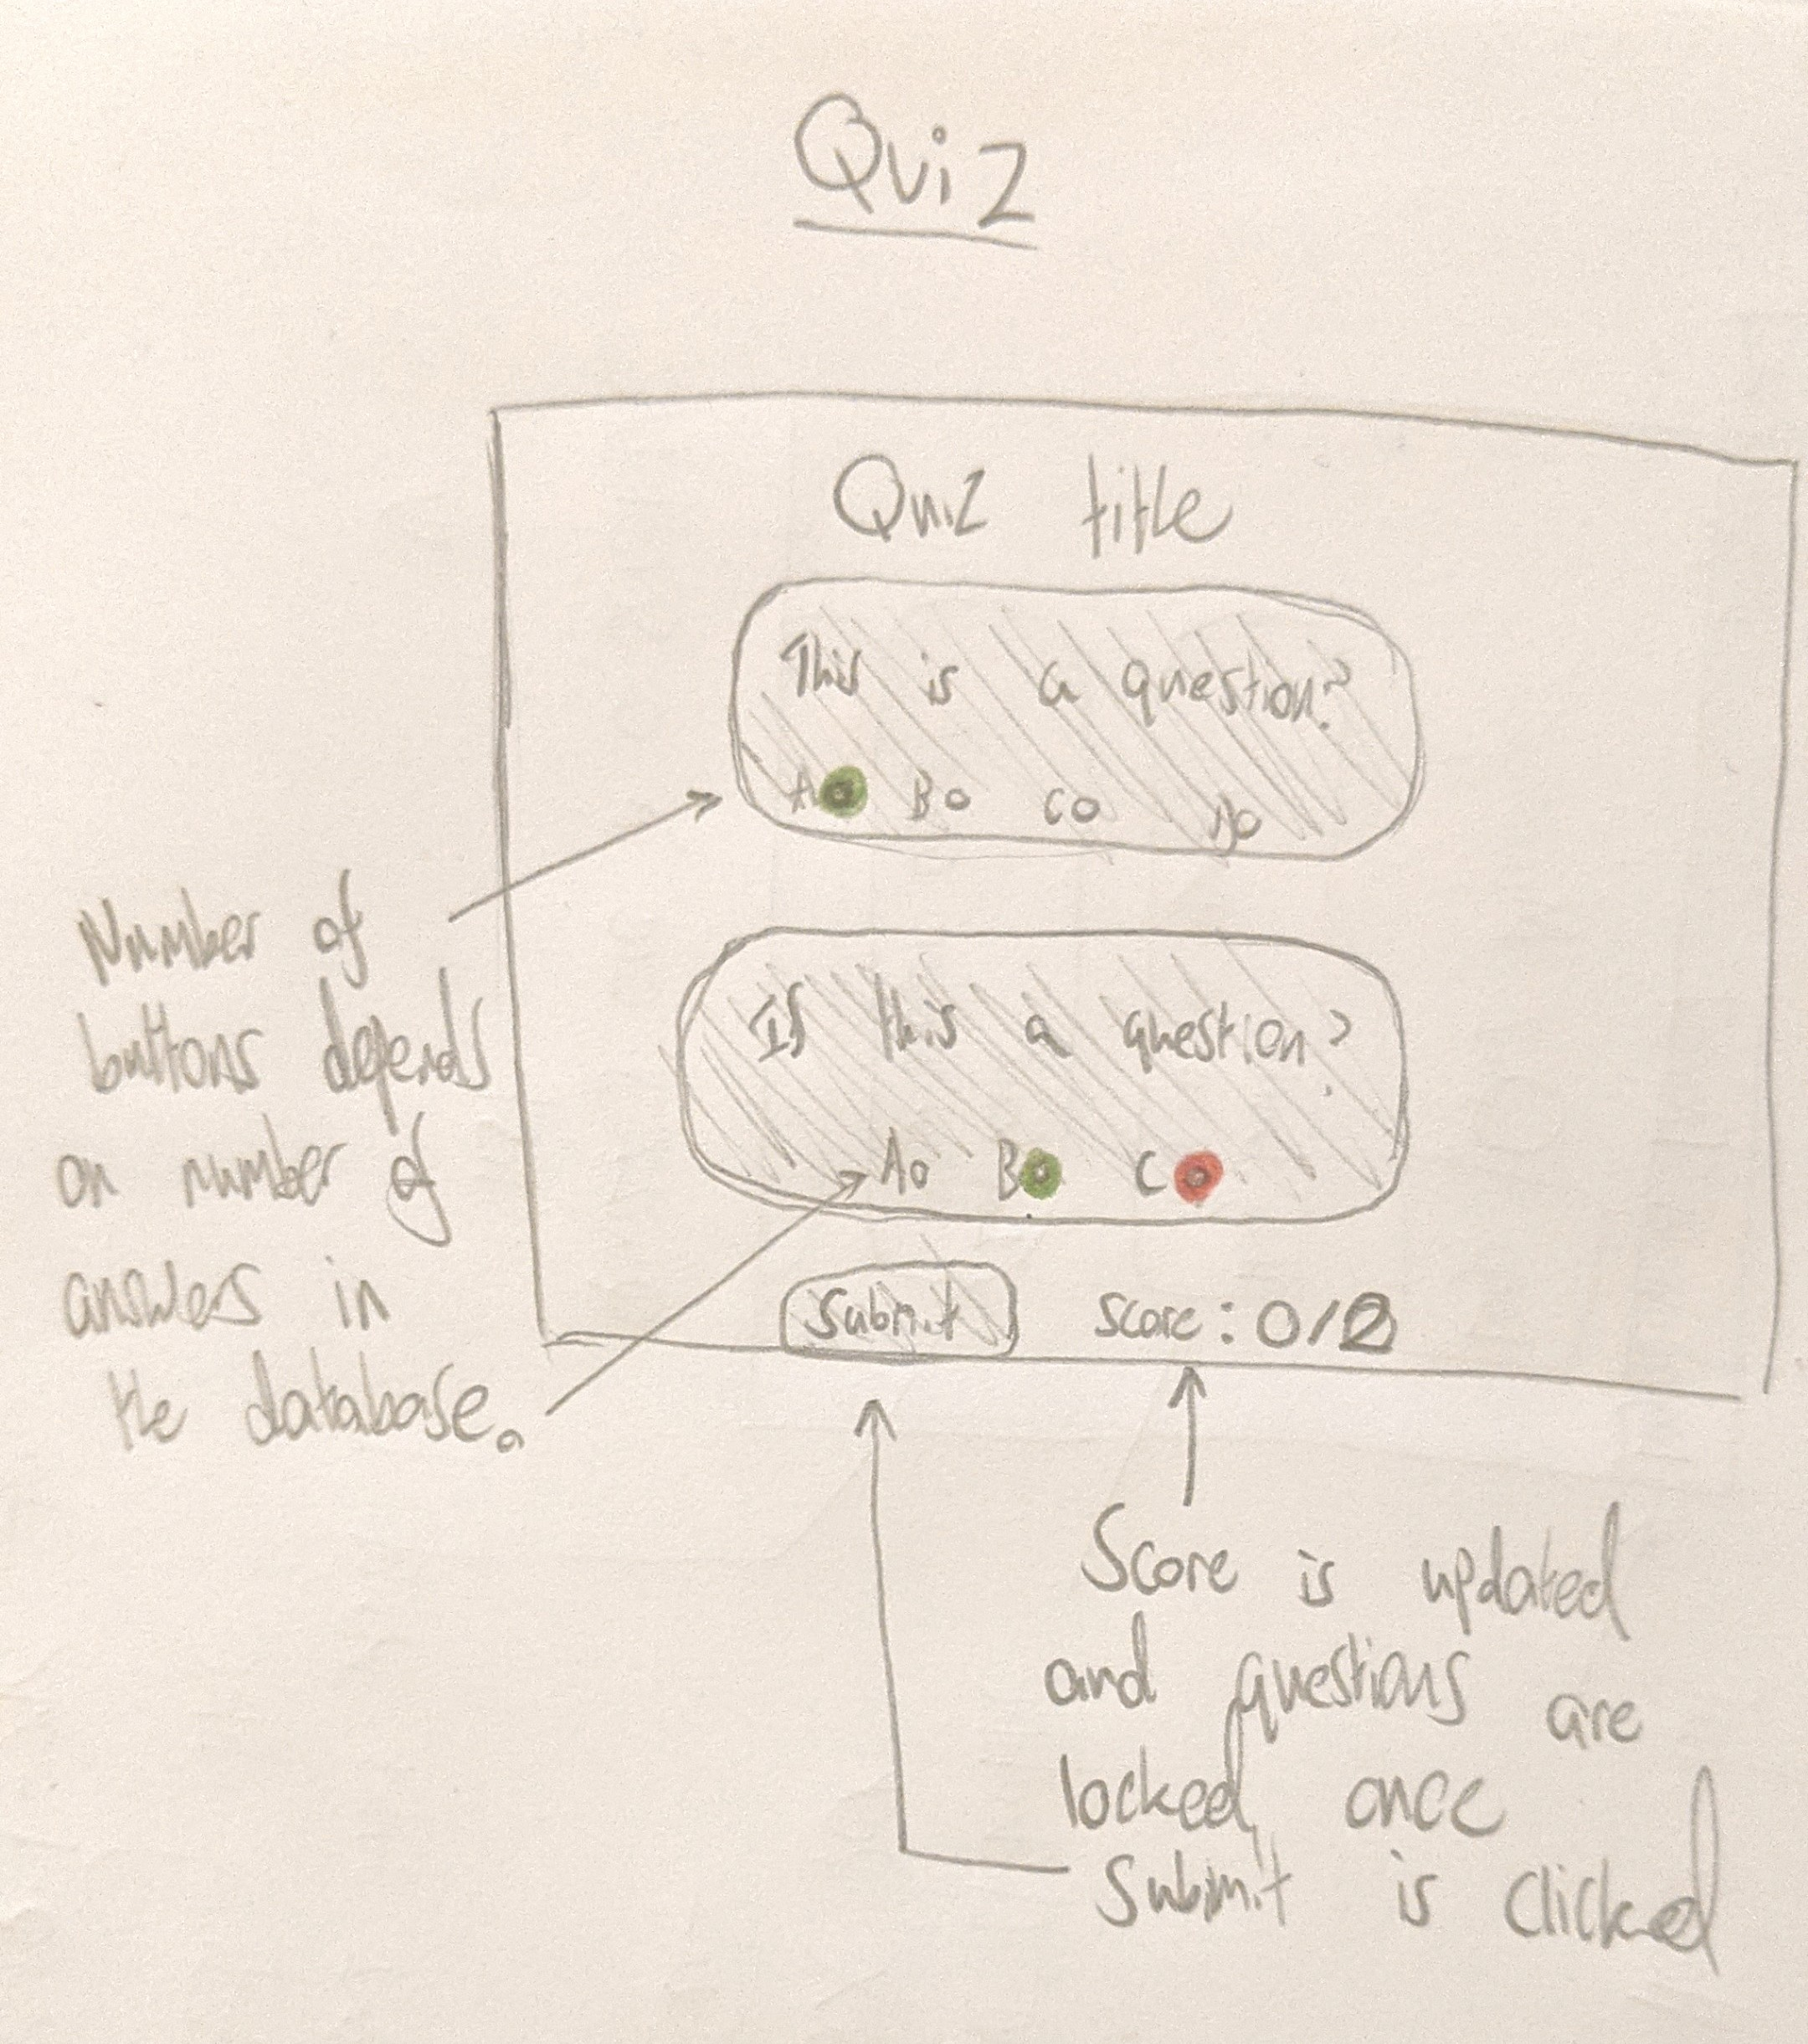 Quiz
Quiz title
This is a question?
A B C D
Is this a question?
A B C
Submit Score: 0/2
Number of
buttons depends
on number of
answers in
the database.
Score is updated
and questions are
locked once
Submit is clicked